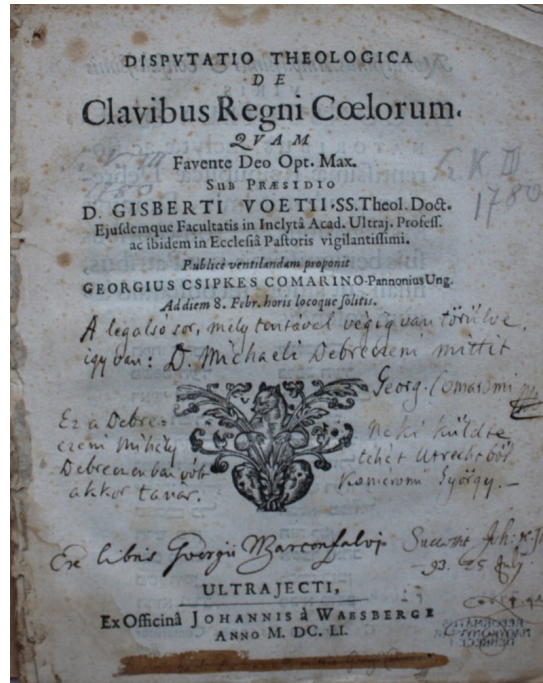 DISPVTATIO THEOLOGICA
DE
Clavibus Regni Cœlorum.
QVAM
Favente Deo Opt. Max.
SUB PRÆSIDIO
D. GISBERTI VOETII. SS. Theol. Doct.
Ejusdemque Facultatis in Inclytâ Acad. Ultraj. Profess.
ac ibidem in Ecclesiâ Pastoris vigilantissimi.
Publicè ventilandam proponit
GEORGIUS CSIPKES COMARINO-Pannonius Ung.
Ad diem 8. Febr. horis locoque solitis.
1780
A legalsó sor, mely tentával végig van törülve,
igy van: D. Michaeli Debreczeni mittit
Georg. Comaromi
Ez a Debre-
czeni Mihály
Debreczenben volt
akkor tanár.
Neki küldte
tehát Utrechtből
Komáromi György.
Ex libris Georgii Marconfalvi
93. 25 July
ULTRAJECTI,
Ex Officinâ JOHANNIS à WAESBERGE
ANNO M. DC. LI.